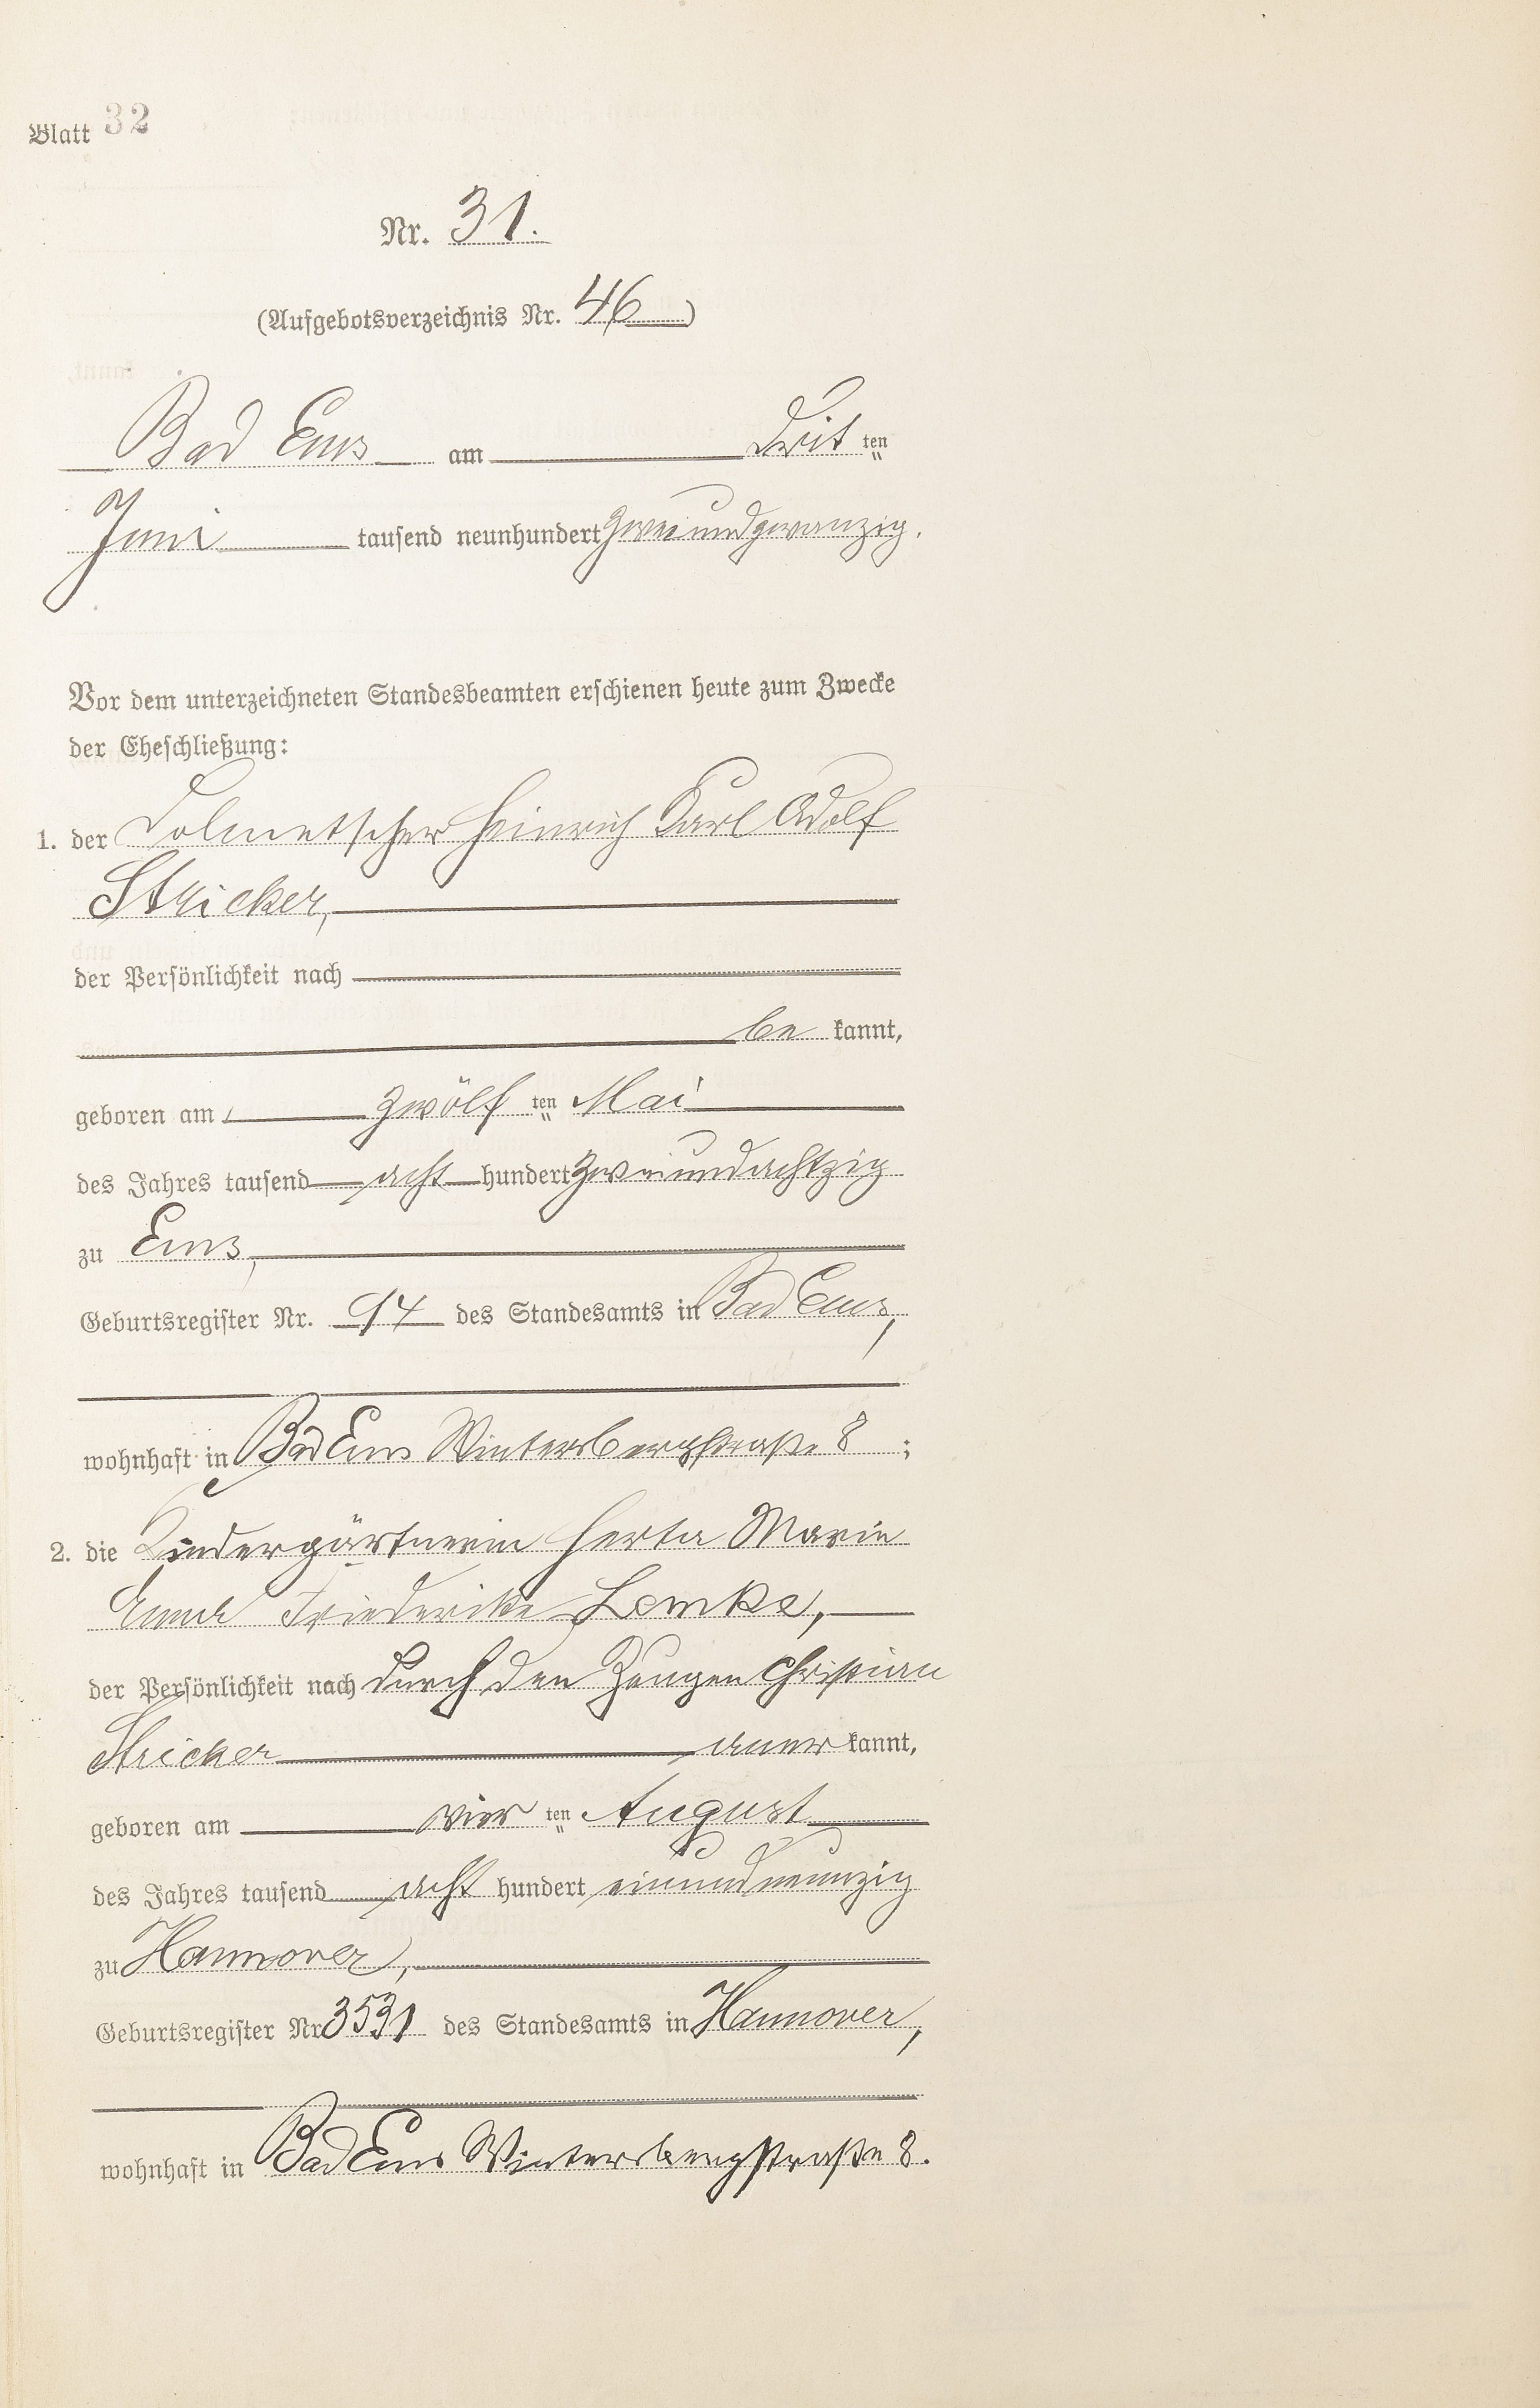 Blatt 32
Nr. 31.
(Aufgebotsverzeichnis Nr. 46)
Bad Ems am Drit ten
Juni tausend neunhundert zweiundzwanzig.
Vor dem unterzeichneten Standesbeamten erschienen heute zum Zwecke
der Eheschließung:
1. der Dolmetscher Heinrich Karl Adolf
Stricker,
der Persönlichkeit nach
be kannt,
geboren am zwölf ten Mai
des Jahres tausend acht hundert zweiundachtzig
zu Ems,
Geburtsregister Nr. 94 des Standesamts in Bad Ems,
wohnhaft in Bad Ems Wintersbergstraße 8 ;
2. die Kindergärtnerin Herta Marie
Friederike Lemke,
der Persönlichkeit nach durch den Zeugen Christian
Stricker aner kannt,
geboren am vier ten August
des Jahres tausend acht hundert einundneunzig
zu Hannover,
Geburtsregister Nr 3531 des Standesamts in Hannover,
wohnhaft in Bad Ems Wintersbergstraße 8.